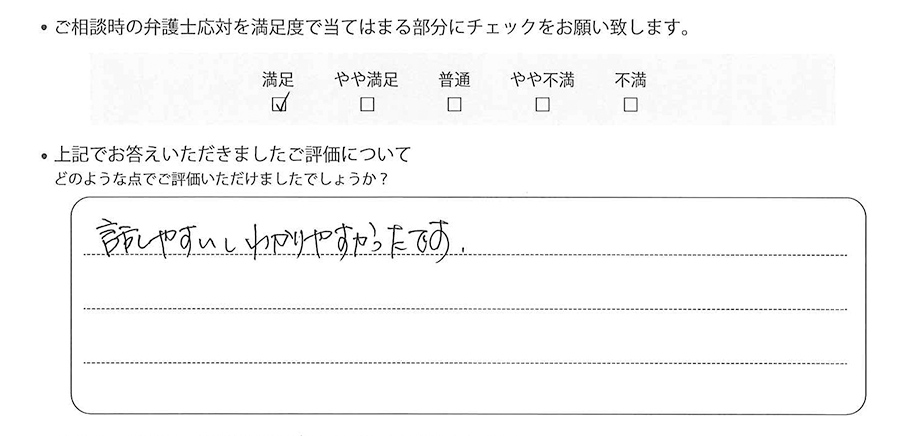 ・ご相談時の弁護士応対を満足度で当てはまる部分にチェックをお願い致します。
満足 やや満足 普通 やや不満 不満
☑ □ □ □ □
・上記でお答えいただきましたご評価について
どのような点でご評価いただけましたでしょうか？
話しやすいしわかりやすかったです.